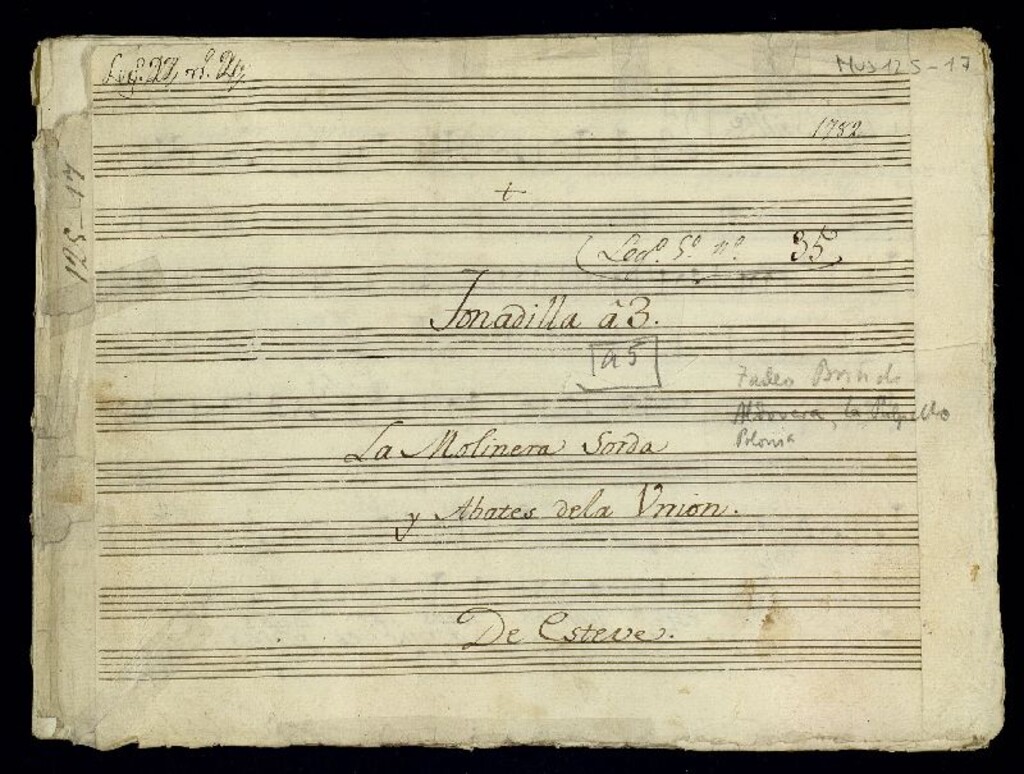 Leg.º 27, n.º 24,
Mus 125-17
1782
125-17
+
(Leg.º 5.º n.º 35,
Tonadilla â 3.
a 5
Tadeo
Aldovera, la Pulpillo
Polonia
La Molinera Sorda
y Abates dela Vnion.
De Esteve.